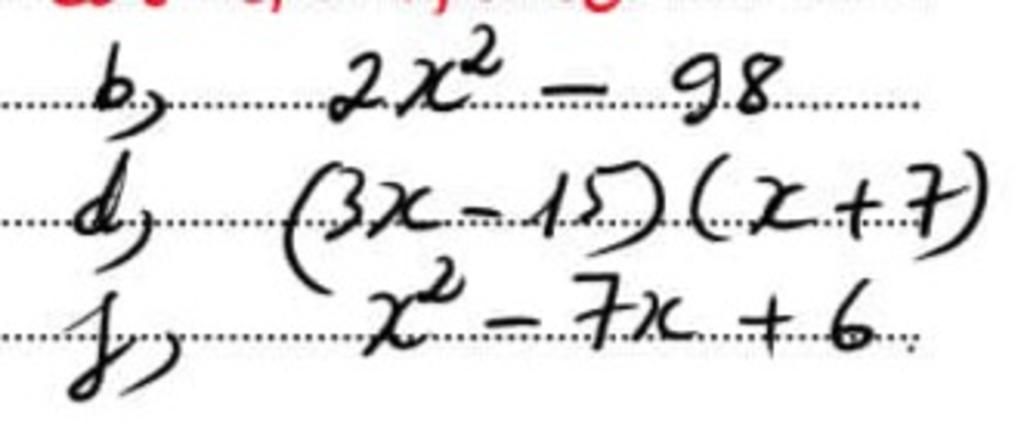 b, 2x² - 98
d, (3x - 15)(x + 7)
f, x² - 7x + 6.